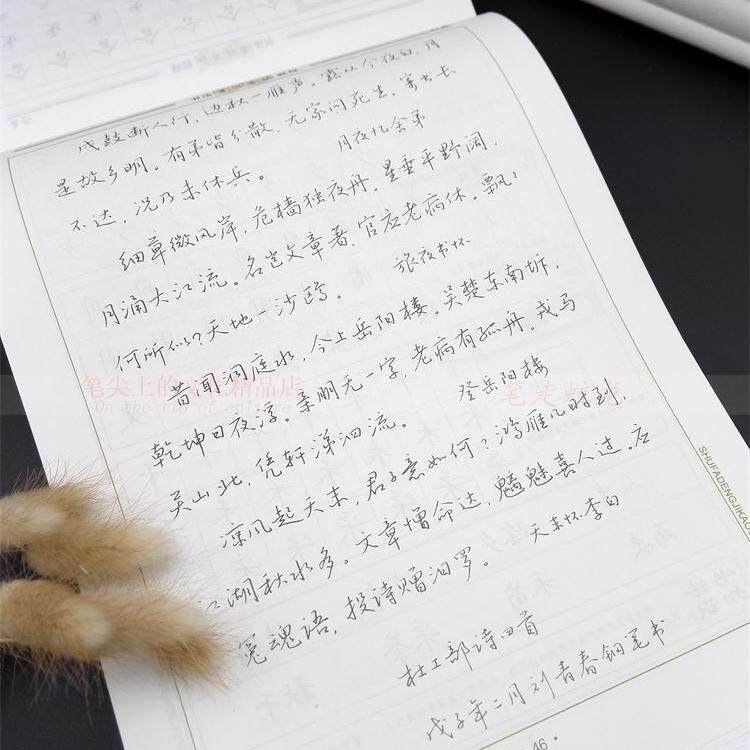 戍鼓断人行，边秋一雁声。露从今夜白，月
是故乡明。有弟皆分散，无家问死生。寄书长
不达，况乃未休兵。 月夜忆舍弟
细草微风岸，危樯独夜舟。星垂平野阔，
月涌大江流。名岂文章著，官应老病休。飘〻
何所似？天地一沙鸥。 旅夜书怀
昔闻洞庭水，今上岳阳楼。吴楚东南坼，
乾坤日夜浮。亲朋无一字，老病有孤舟。戎马
关山北，凭轩涕泗流。 登岳阳楼
凉风起天末，君子意如何？鸿雁几时到，
江湖秋水多。文章憎命达，魑魅喜人过。应
冤魂语，投诗赠汨罗。 天末怀李白
杜工部诗四首
戊子年二月刘青春钢笔书
46
SHUFADENGJIKA
笔尖上的文化精品店
On the tip of culture
笔走